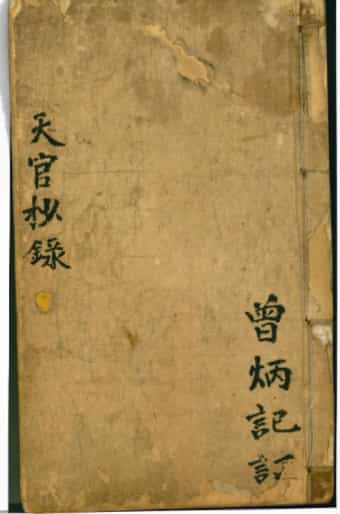 天官抄錄
曾炳記訂